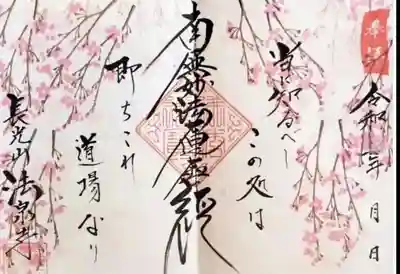 奉拝
令和 年 月 日
当に知るべし
この処は
南無妙法蓮華経
即ちこれ
道場なり
長光山 法泉寺